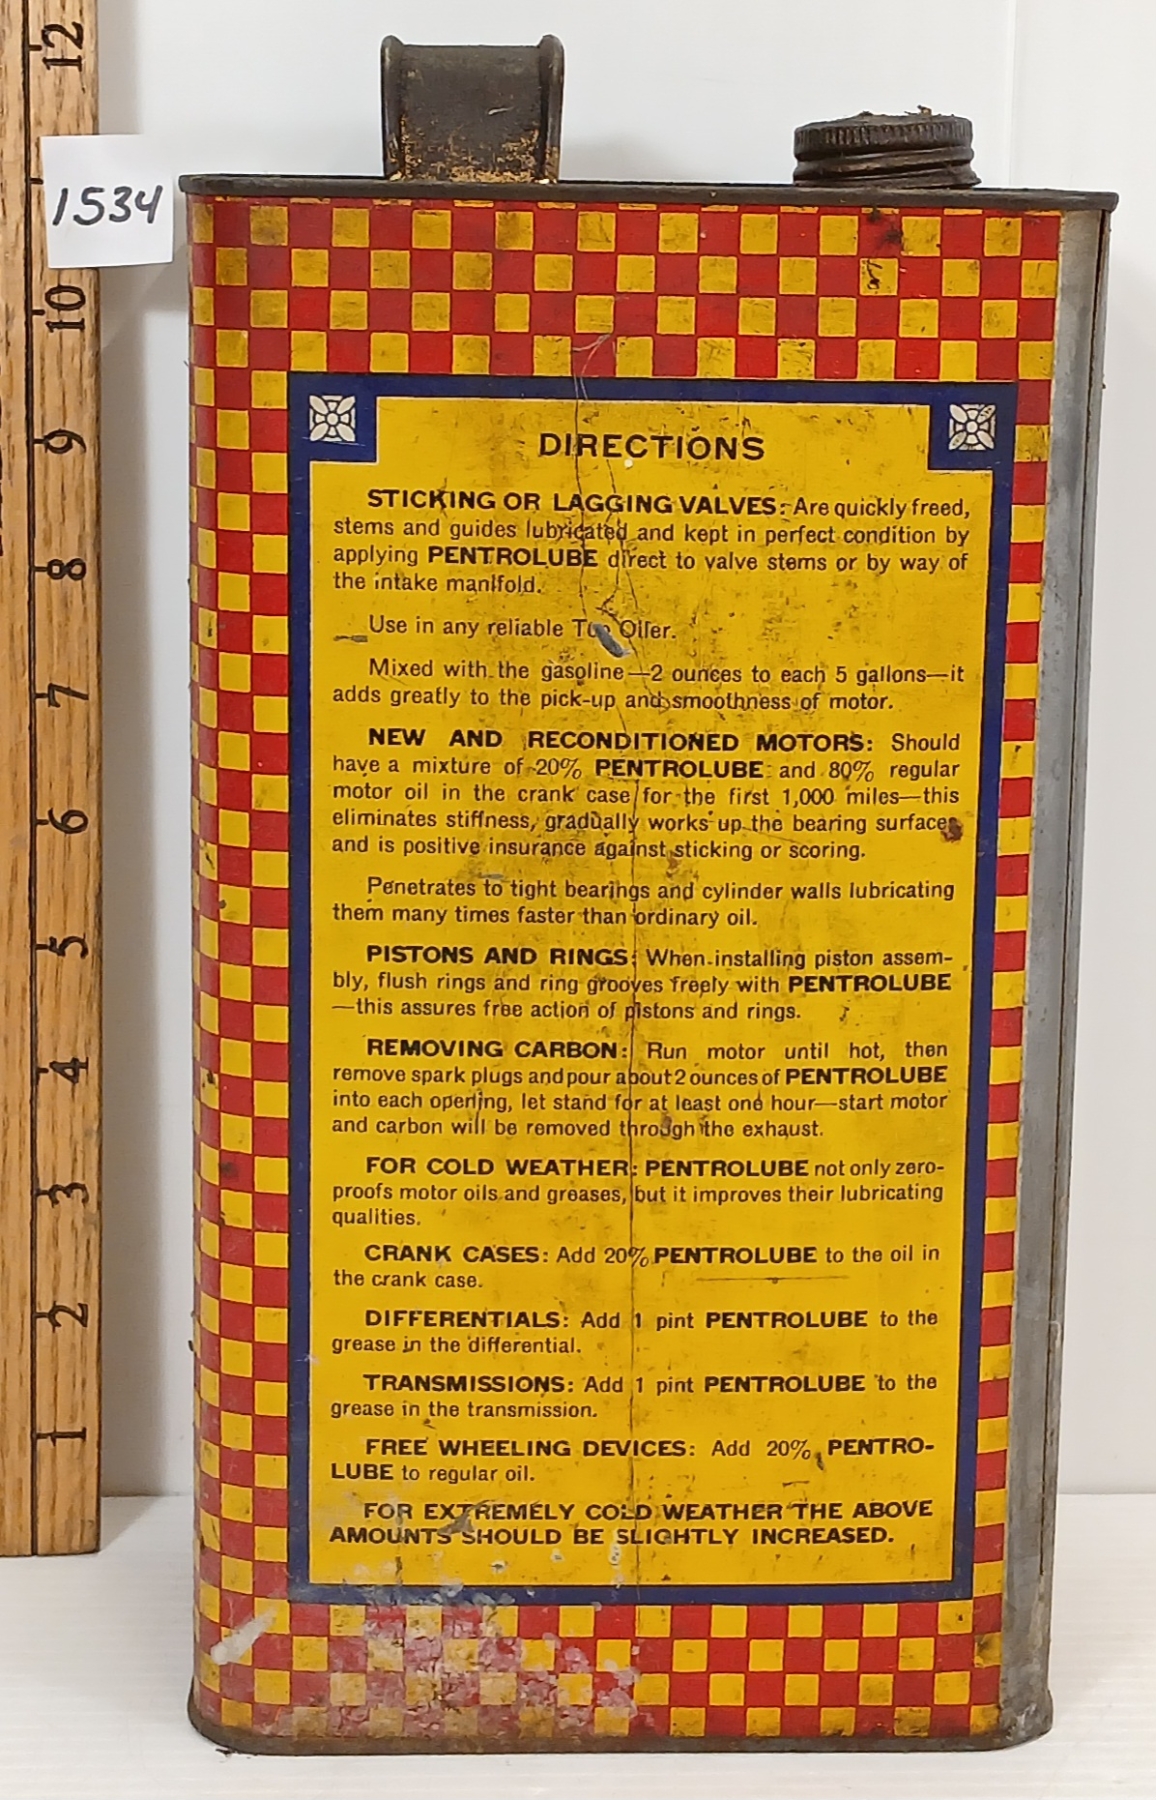 12
1534
10
9
8
7
6
5
4
3
2
1
DIRECTIONS
STICKING OR LAGGING VALVES: Are quickly freed,
stems and guides lubricated and kept in perfect condition by
applying PENTROLUBE direct to valve stems or by way of
the intake manifold.
Use in any reliable Top Oiler.
Mixed with the gasoline—2 ounces to each 5 gallons—it
adds greatly to the pick-up and smoothness of motor.
NEW AND RECONDITIONED MOTORS: Should
have a mixture of 20% PENTROLUBE and 80% regular
motor oil in the crank case for the first 1,000 miles—this
eliminates stiffness, gradually works up the bearing surfaces
and is positive insurance against sticking or scoring.
Penetrates to tight bearings and cylinder walls lubricating
them many times faster than ordinary oil.
PISTONS AND RINGS: When installing piston assem-
bly, flush rings and ring grooves freely with PENTROLUBE
—this assures free action of pistons and rings.
REMOVING CARBON: Run motor until hot, then
remove spark plugs and pour about 2 ounces of PENTROLUBE
into each opening, let stand for at least one hour—start motor
and carbon will be removed through the exhaust.
FOR COLD WEATHER: PENTROLUBE not only zero-
proofs motor oils and greases, but it improves their lubricating
qualities.
CRANK CASES: Add 20% PENTROLUBE to the oil in
the crank case.
DIFFERENTIALS: Add 1 pint PENTROLUBE to the
grease in the differential.
TRANSMISSIONS: Add 1 pint PENTROLUBE to the
grease in the transmission.
FREE WHEELING DEVICES: Add 20% PENTRO-
LUBE to regular oil.
FOR EXTREMELY COLD WEATHER THE ABOVE
AMOUNTS SHOULD BE SLIGHTLY INCREASED.